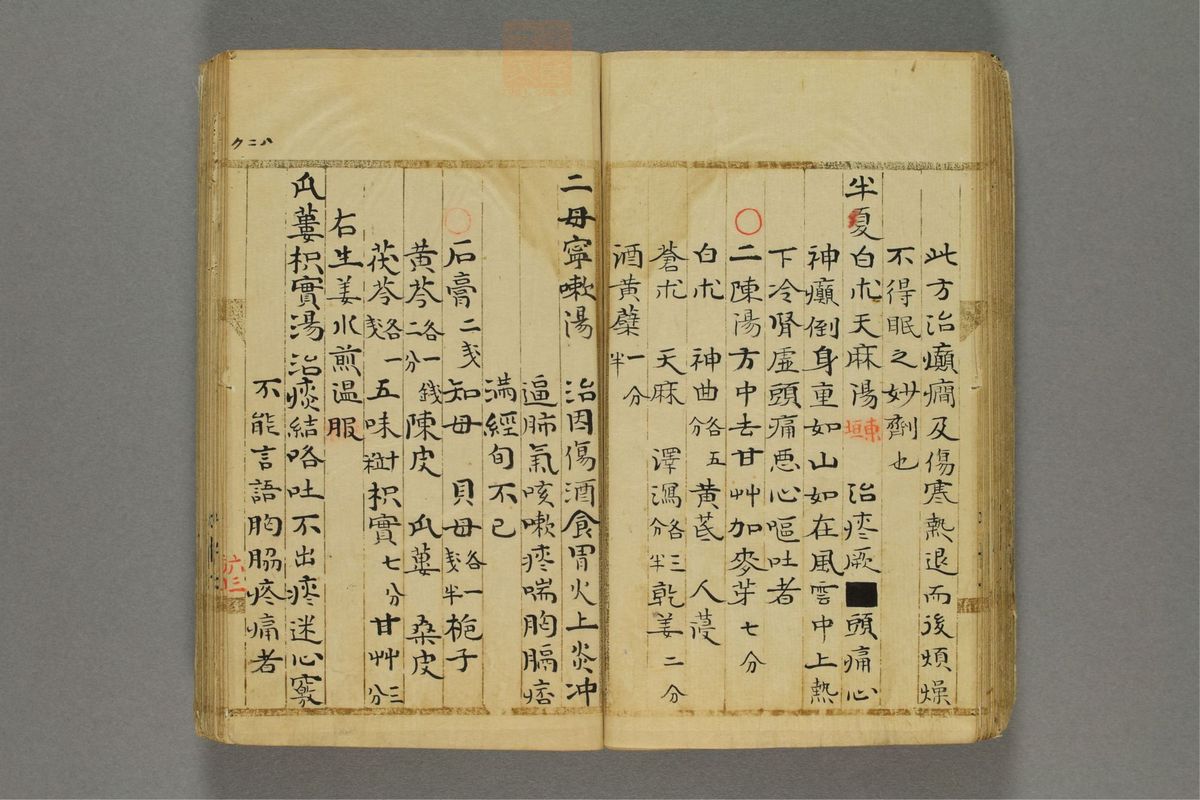 此方治癲癇及傷寒熱退而後煩燥
不得眠之妙劑也
半夏白朮天麻湯 東垣 治痰厥頭痛心
神癲倒身重如山如在風雲中上熱
下冷腎虛頭痛悪心嘔吐者
二陳湯方中去甘艸加麥芽七分
白朮 神曲各五分 黄茋 人蓡
蒼朮 天麻 澤瀉各三分半 乾姜二分
酒黄蘗一分半
二母寧嗽湯 治因傷酒食胃火上炎冲
逼肺氣咳嗽痰喘胸膈痞
満經旬不已
石膏二戔 知母 貝母各一戔半 梔子
黄芩各一錢二分 陳皮 瓜蔞 桑皮
茯苓各一戔 五味十粒 枳實七分 甘艸三分
右生姜水煎温服
瓜蔞枳實湯 治痰結咯吐不出痰迷心竅
不能言語胸脇疼痛者
八二ク
六三